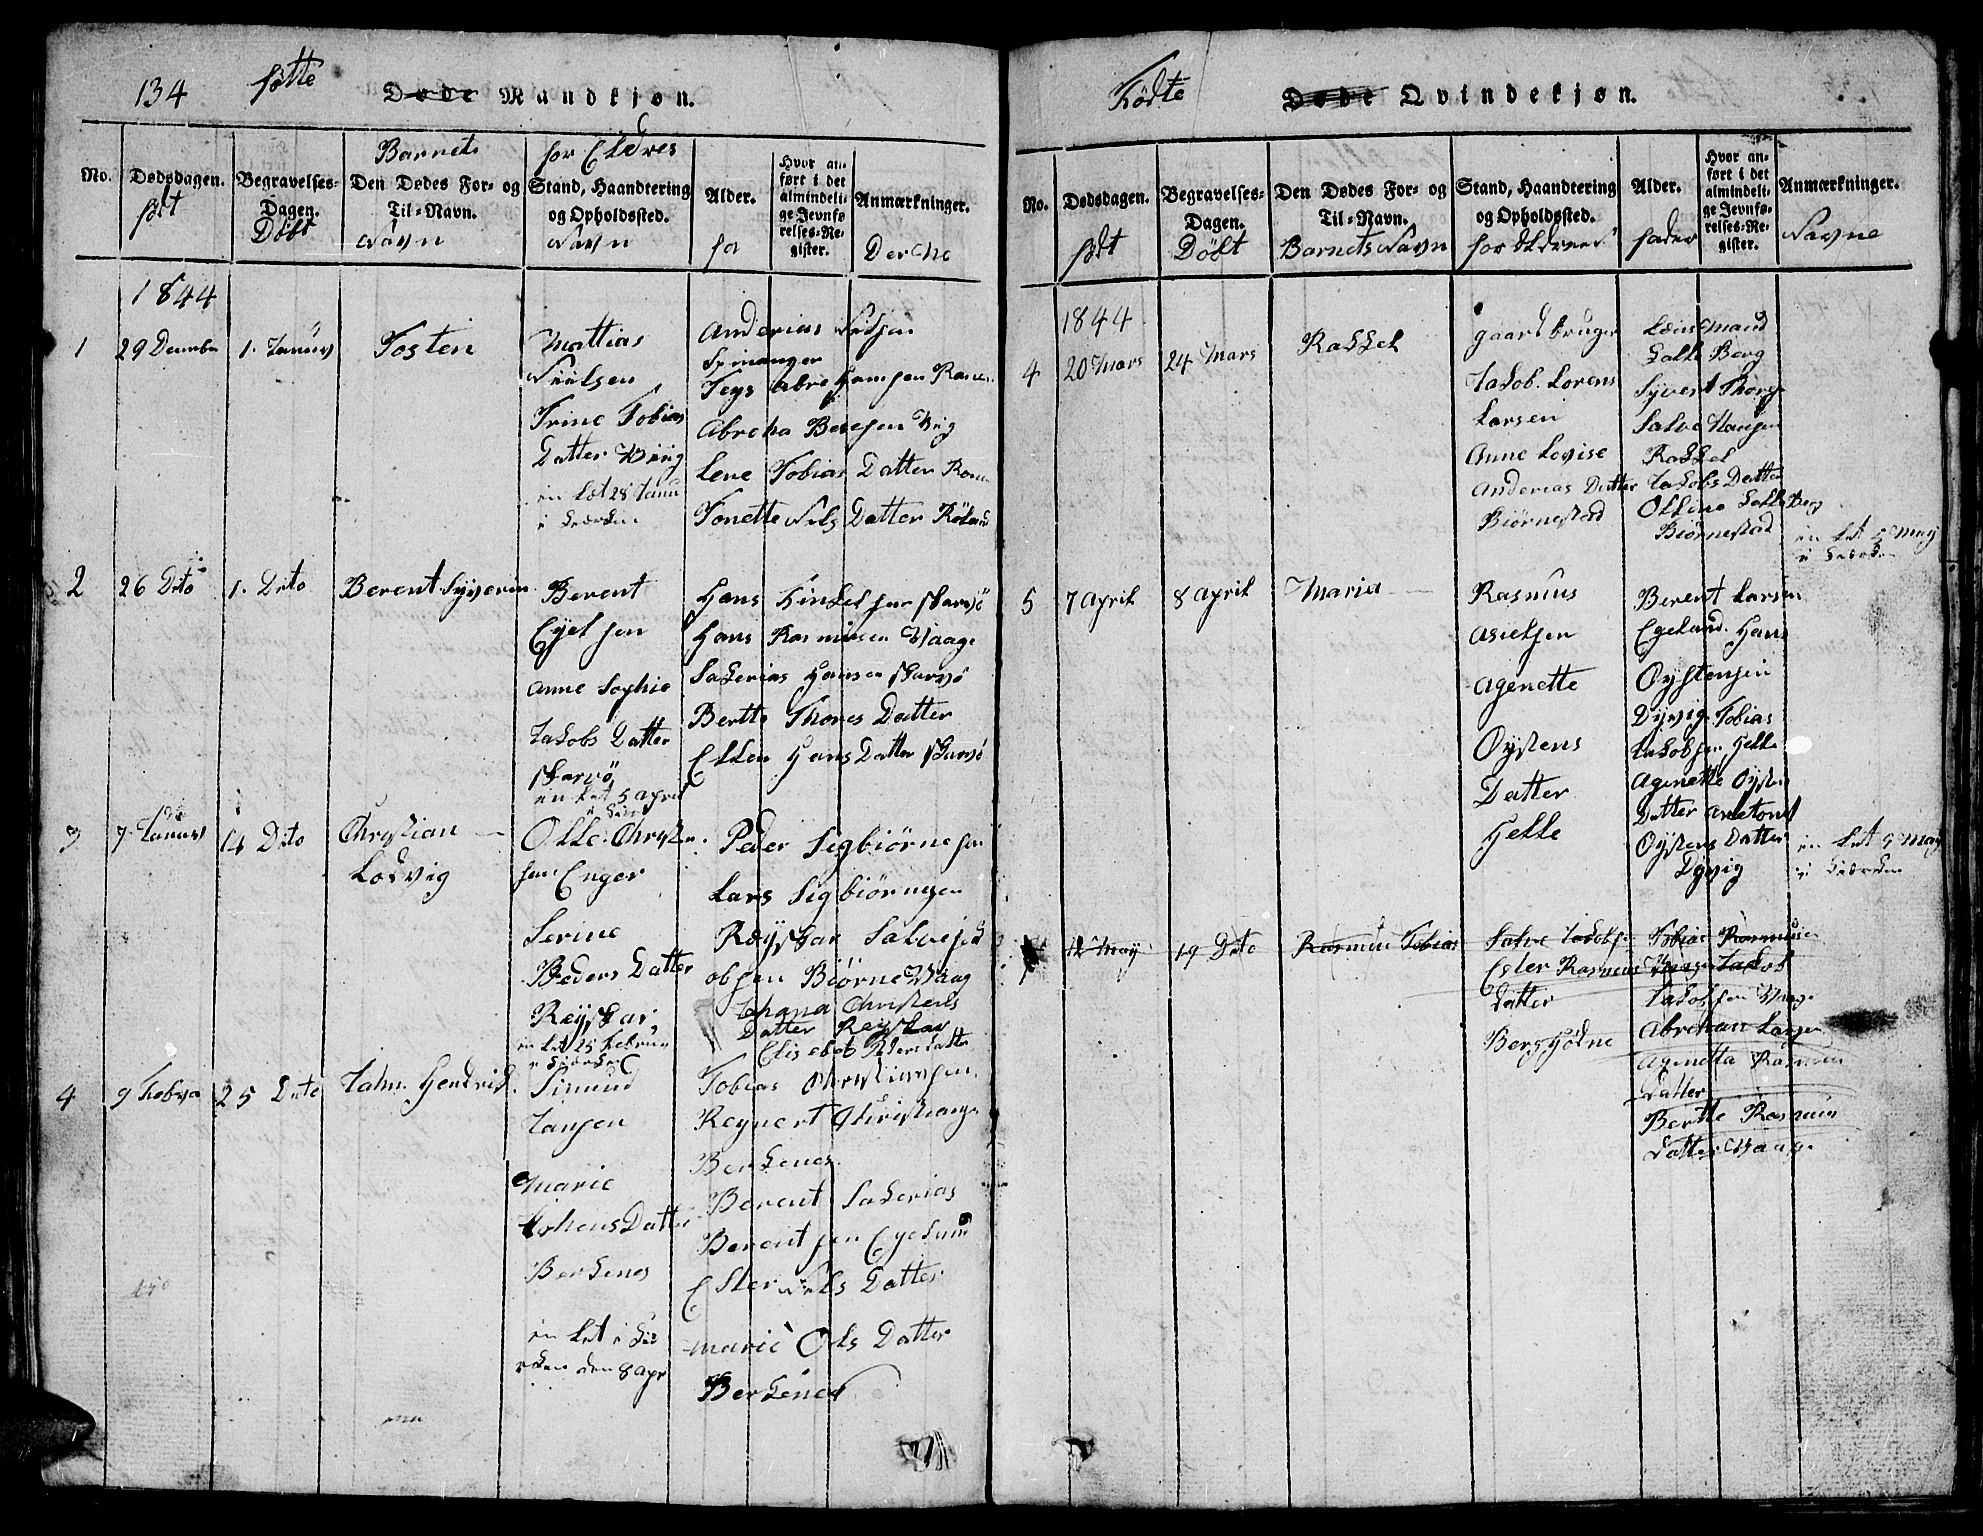 134 føtte Døde Mandkjøn.
No.
Dødsdagen.
født
Begravelses-
Dagen.
Døbt
Barnets
Den Dødes For- og
Til-Navn.
Navn
for Eldres
Stand, Haandtering
og Opholdssted.
Navn
Alder.
fa
Hvor an-
ført i det
almindeli-
ge Jevnfø-
relses-Re-
gister.
Anmærkninger.
Der Ne
1844
1
29 Desember
1. Januar
Tosten
Mattias
Nielsen
Trine Tobias
Datter
28 Janu
Anderias
Abrahamsen
Abreha Berejsen
Lene Tobias Datter
Tonette Nils Datter
2
26 Dito
1. Dito
Berent Syverin
Berent
Eyelsen
Anne Sophie
Jakobs Datter
Skarvø
en Let 5 april
Hans Hinkel sen Skarvø
Hans Rasmusen Vaage
Sakerias Hansen Skarvø
Bertte Thores Datter
Ellen Hans Datter Skarvø
3
7 Januar
14 Dito
Christian
Lodvig
Olle Christen
sen Enger
Serine
Peders Datter
Røyskar
en Let 25 Februar
Peder Sigbiørnesen
Lars Sigbiørnesen
Røyskar Salve Jak
obsen Biørne Vaag
Johana Christens
Datter Røyskar
Elisebet Peders Datter
4
9 Febra
25 Dito
Jahn Hendrik
Simund
Jansen
Marie
Johens Datter
Berkenes
en Let i Kie
rken den 8 Apr
Tobias Christiansen
Reynert Christiansen
Berkenes
Berent Sakerias
Berent sen Egeland
Ester Nels Datter
Marie Ols Datter
Berkenes
Fødte Døde Qvindekjøn.
No.
Dødsdagen.
født
Begravelses-
Dagen.
Døbt
Den Dødes For- og
Til-Navn.
Barnets Navn
Stand, Haandtering
og Opholdssted.
for Eldres
Alder.
fader
Hvor an-
ført i det
almindeli-
ge Jevnfø-
relses-Re-
gister.
Anmærkninger.
Navne
1844
4
20 Mars
24 Mars
Rakkel
gaardbruger
Jakob Lorens
Larsen
Anne Lovise
Anderias Datter
Biørnestad
Lænsmand
Lalle Berg
Syvert Thorg
Salve Hansen
Rakkel
Jakobs Datter
Olline Lalle Berg
Biørnestad
en Let 5 May
i Kiørken
5
7 April
8 April
Maria
Rasmus
Asielsen
Agenette
Oystens
Datter
Helle
Berent Larsen
Egeland Hans
Oystensen
Dyvig Tobias
Jakobsen Helle
Agenette Oysten
Datter
Oystens Datter
Dyvig
en Let 5 May
i Kiørken
12 May
19 Dito
Rasmus Tobias
Salve Jakobsen
Ester Rasmus
Datter
Berghølne
Tobias Rasmusen
Jakob
Jakobsen Vaage
Abrehan Larsen
Agenetta Rasmus
Datter
Bertte Rasmus
Datter Vaage